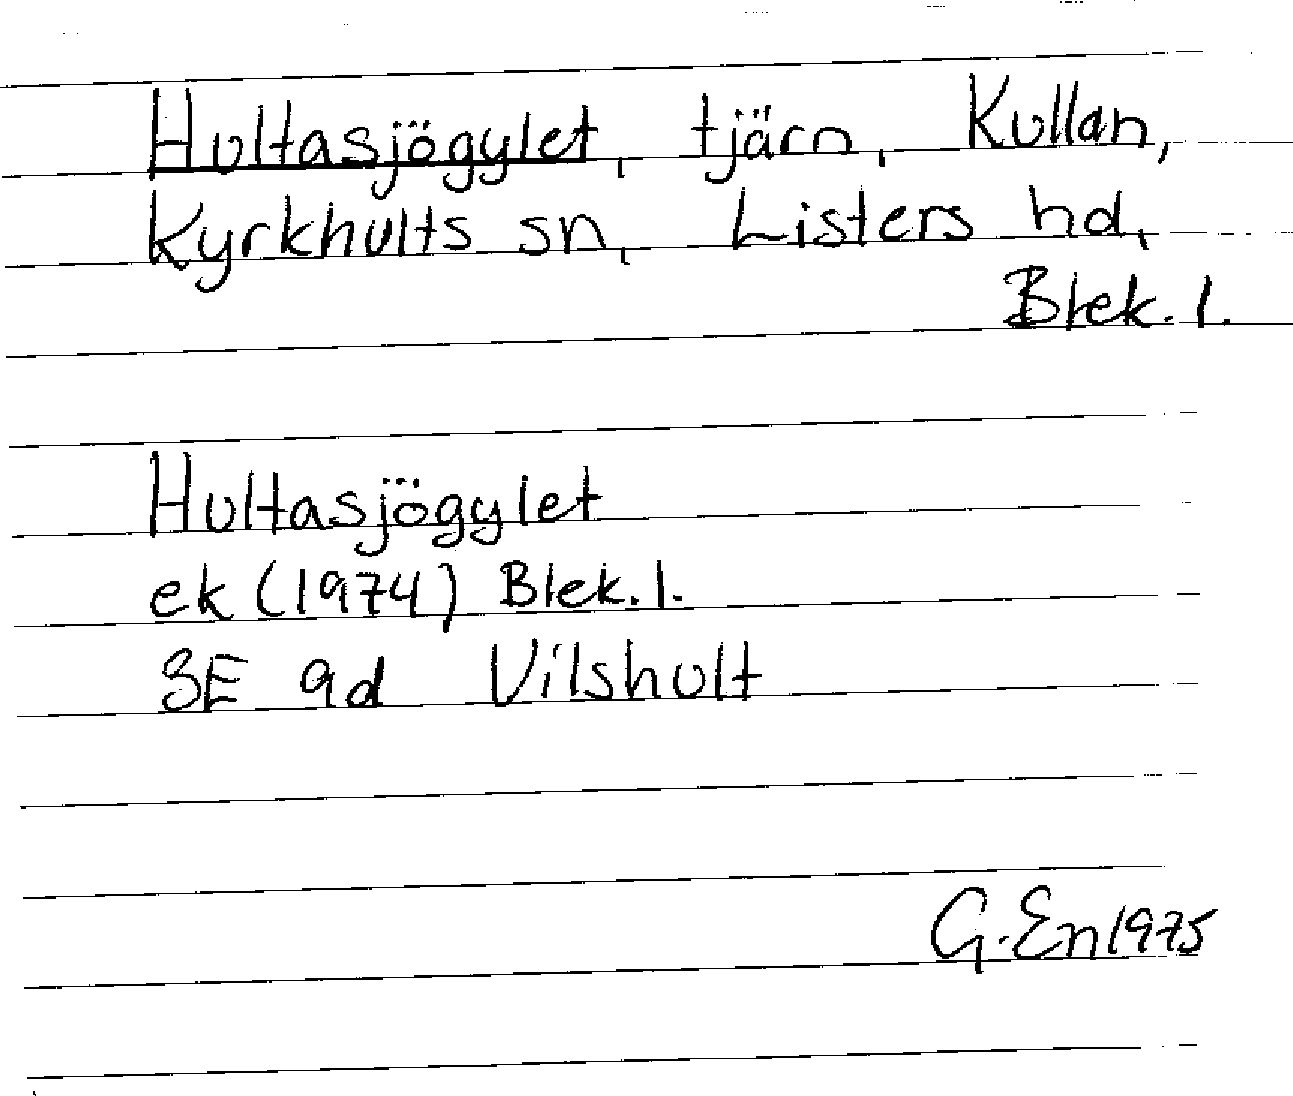 Hultasjögylet, tjärn, Kullan,
Kyrkhults sn, Listers hd,
Blek. l.
Hultasjögylet
ek (1974) Blek. l.
3E 9d Vilshult
G. En 1975